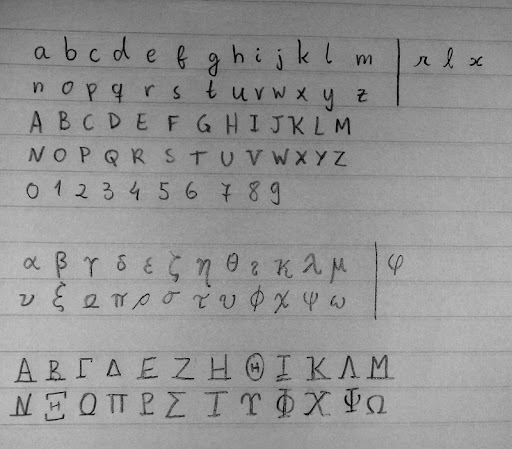 a b c d e f g h i j k l m | r l x
n o p q r s t u v w x y z
A B C D E F G H I J K L M
N O P Q R S T U V W X Y Z
0 1 2 3 4 5 6 7 8 9
α β γ δ ε ζ η θ ι κ λ μ | φ
ν ξ ο π ρ σ τ υ ϕ χ ψ ω
Α Β Γ Δ Ε Ζ Η Θ Ι Κ Λ Μ
Ν Ξ Ο Π Ρ Σ Τ Υ Φ Χ Ψ Ω